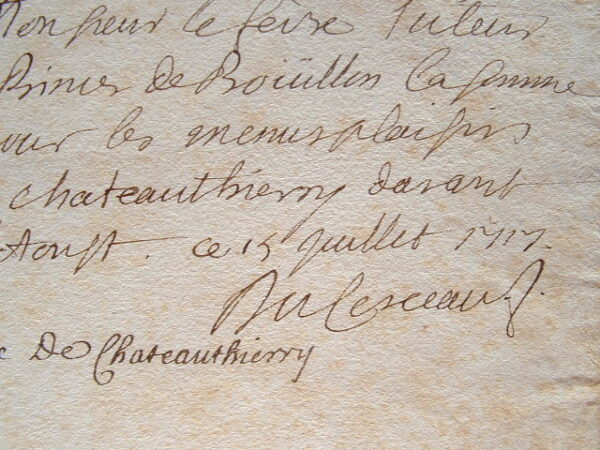 Monsieur le feivre Tuteur
Princes de Boüillon la somme
our les menus plaisirs
chateauthierry davant
Aoust. ce 15 Juillet 1717.
Du Cerceau
e De Chateauthierry